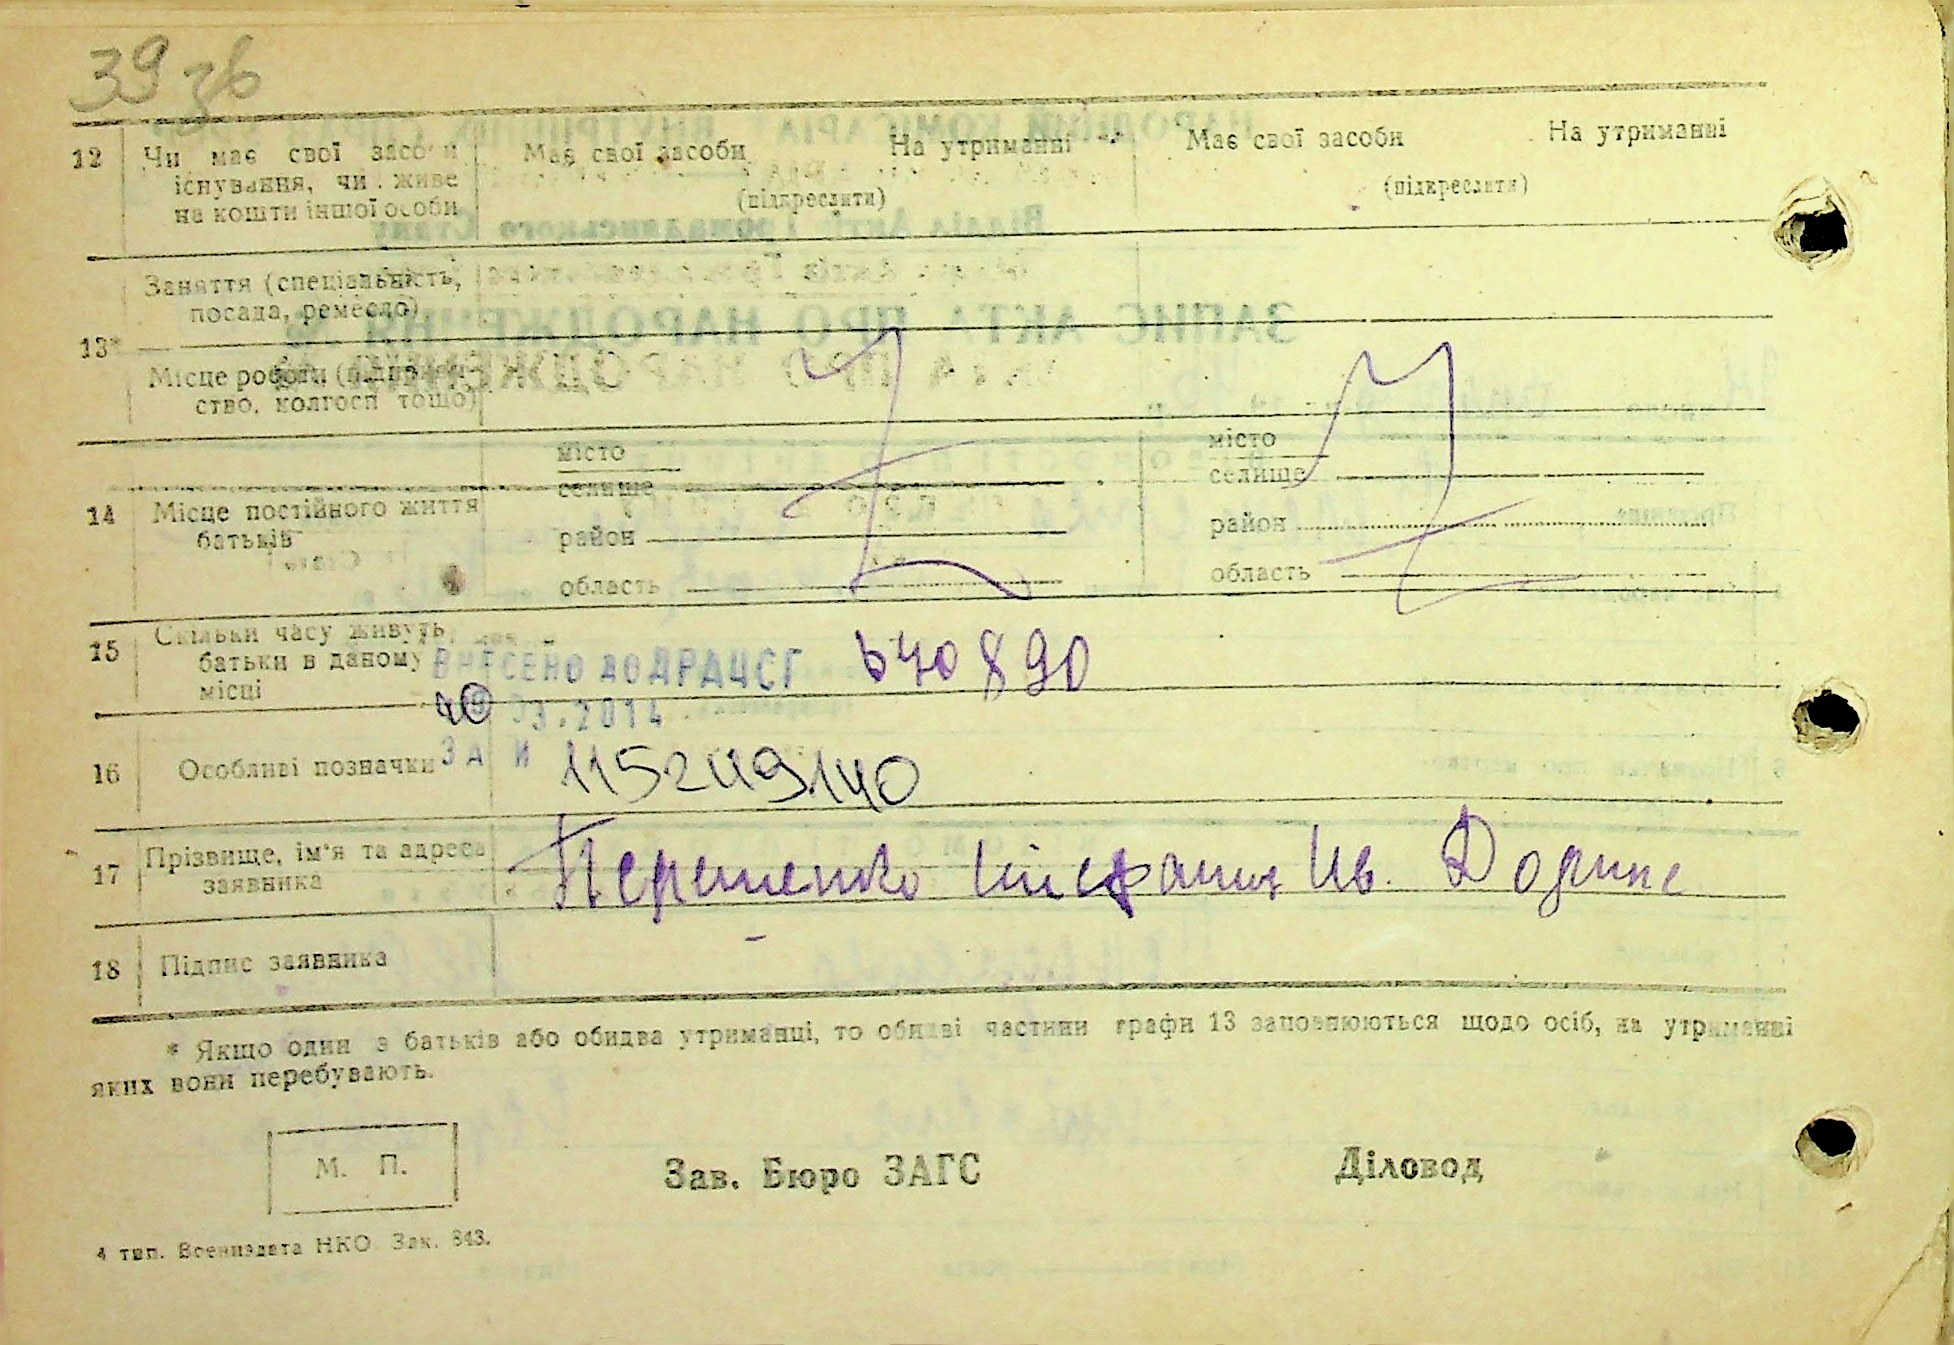 39 зв
12 Чи має свої засоби Має свої засоби На утриманні Має свої засоби На утриманні
існування, чи живе
на кошти іншої особи (підкреслити) (підкреслити)
Заняття (спеціальність,
посада, ремесло)
13*
Місце роботи (підприєм-
ство, колгосп тощо)
місто місто
селище селище
14 Місце постійного життя
батьків район район
область область
15 Скільки часу живуть
батьки в даному ВНЕСЕНО ДО ДРАЦСГ 640890
місці
03.2014
16 Особливі позначки ЗА № 115249140
17 Прізвище, ім'я та адреса
заявника Ив.
18 Підпис заявника
* Якщо один з батьків або обидва утриманці, то обидві частини графи 13 заповнюються щодо осіб, на утриманні
яких вони перебувають.
М. П. Зав. Бюро ЗАГС Діловод
4 тип. Воениздата НКО Зак. 843.